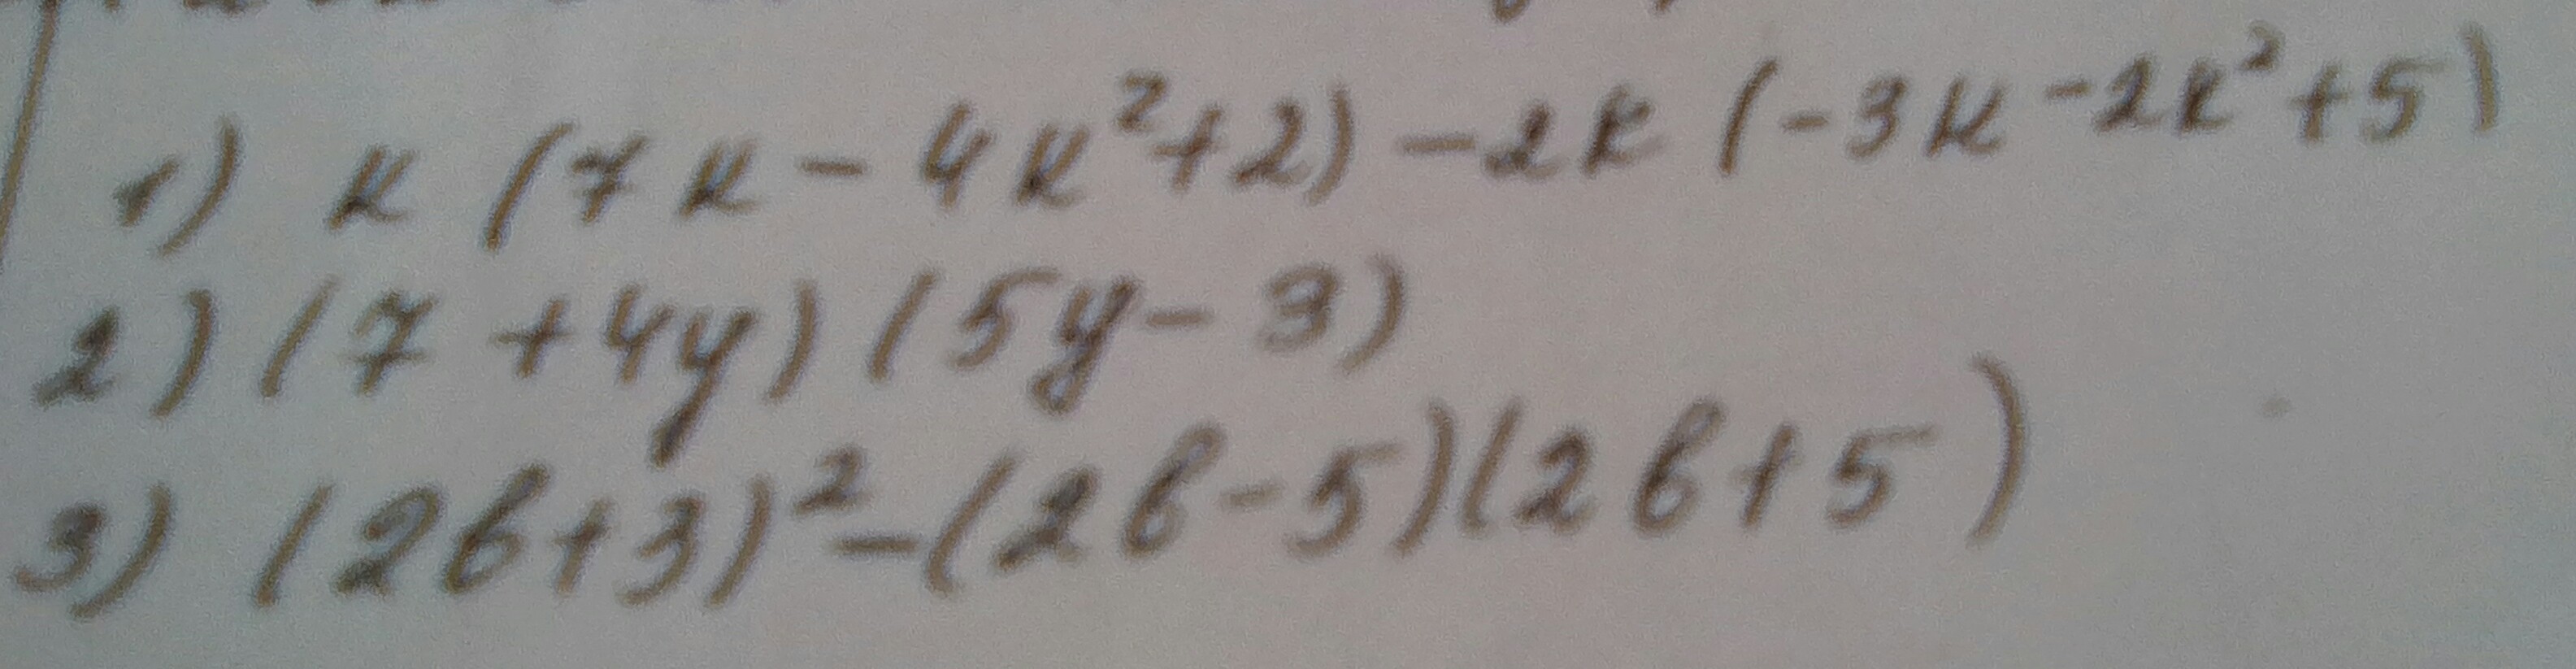 1) k (7k - 4k²+2) - 2k (-3k - 2k²+5)
2) (7 + 4y) (5y - 3)
3) (2b+3)² - (2b-5)(2b+5)